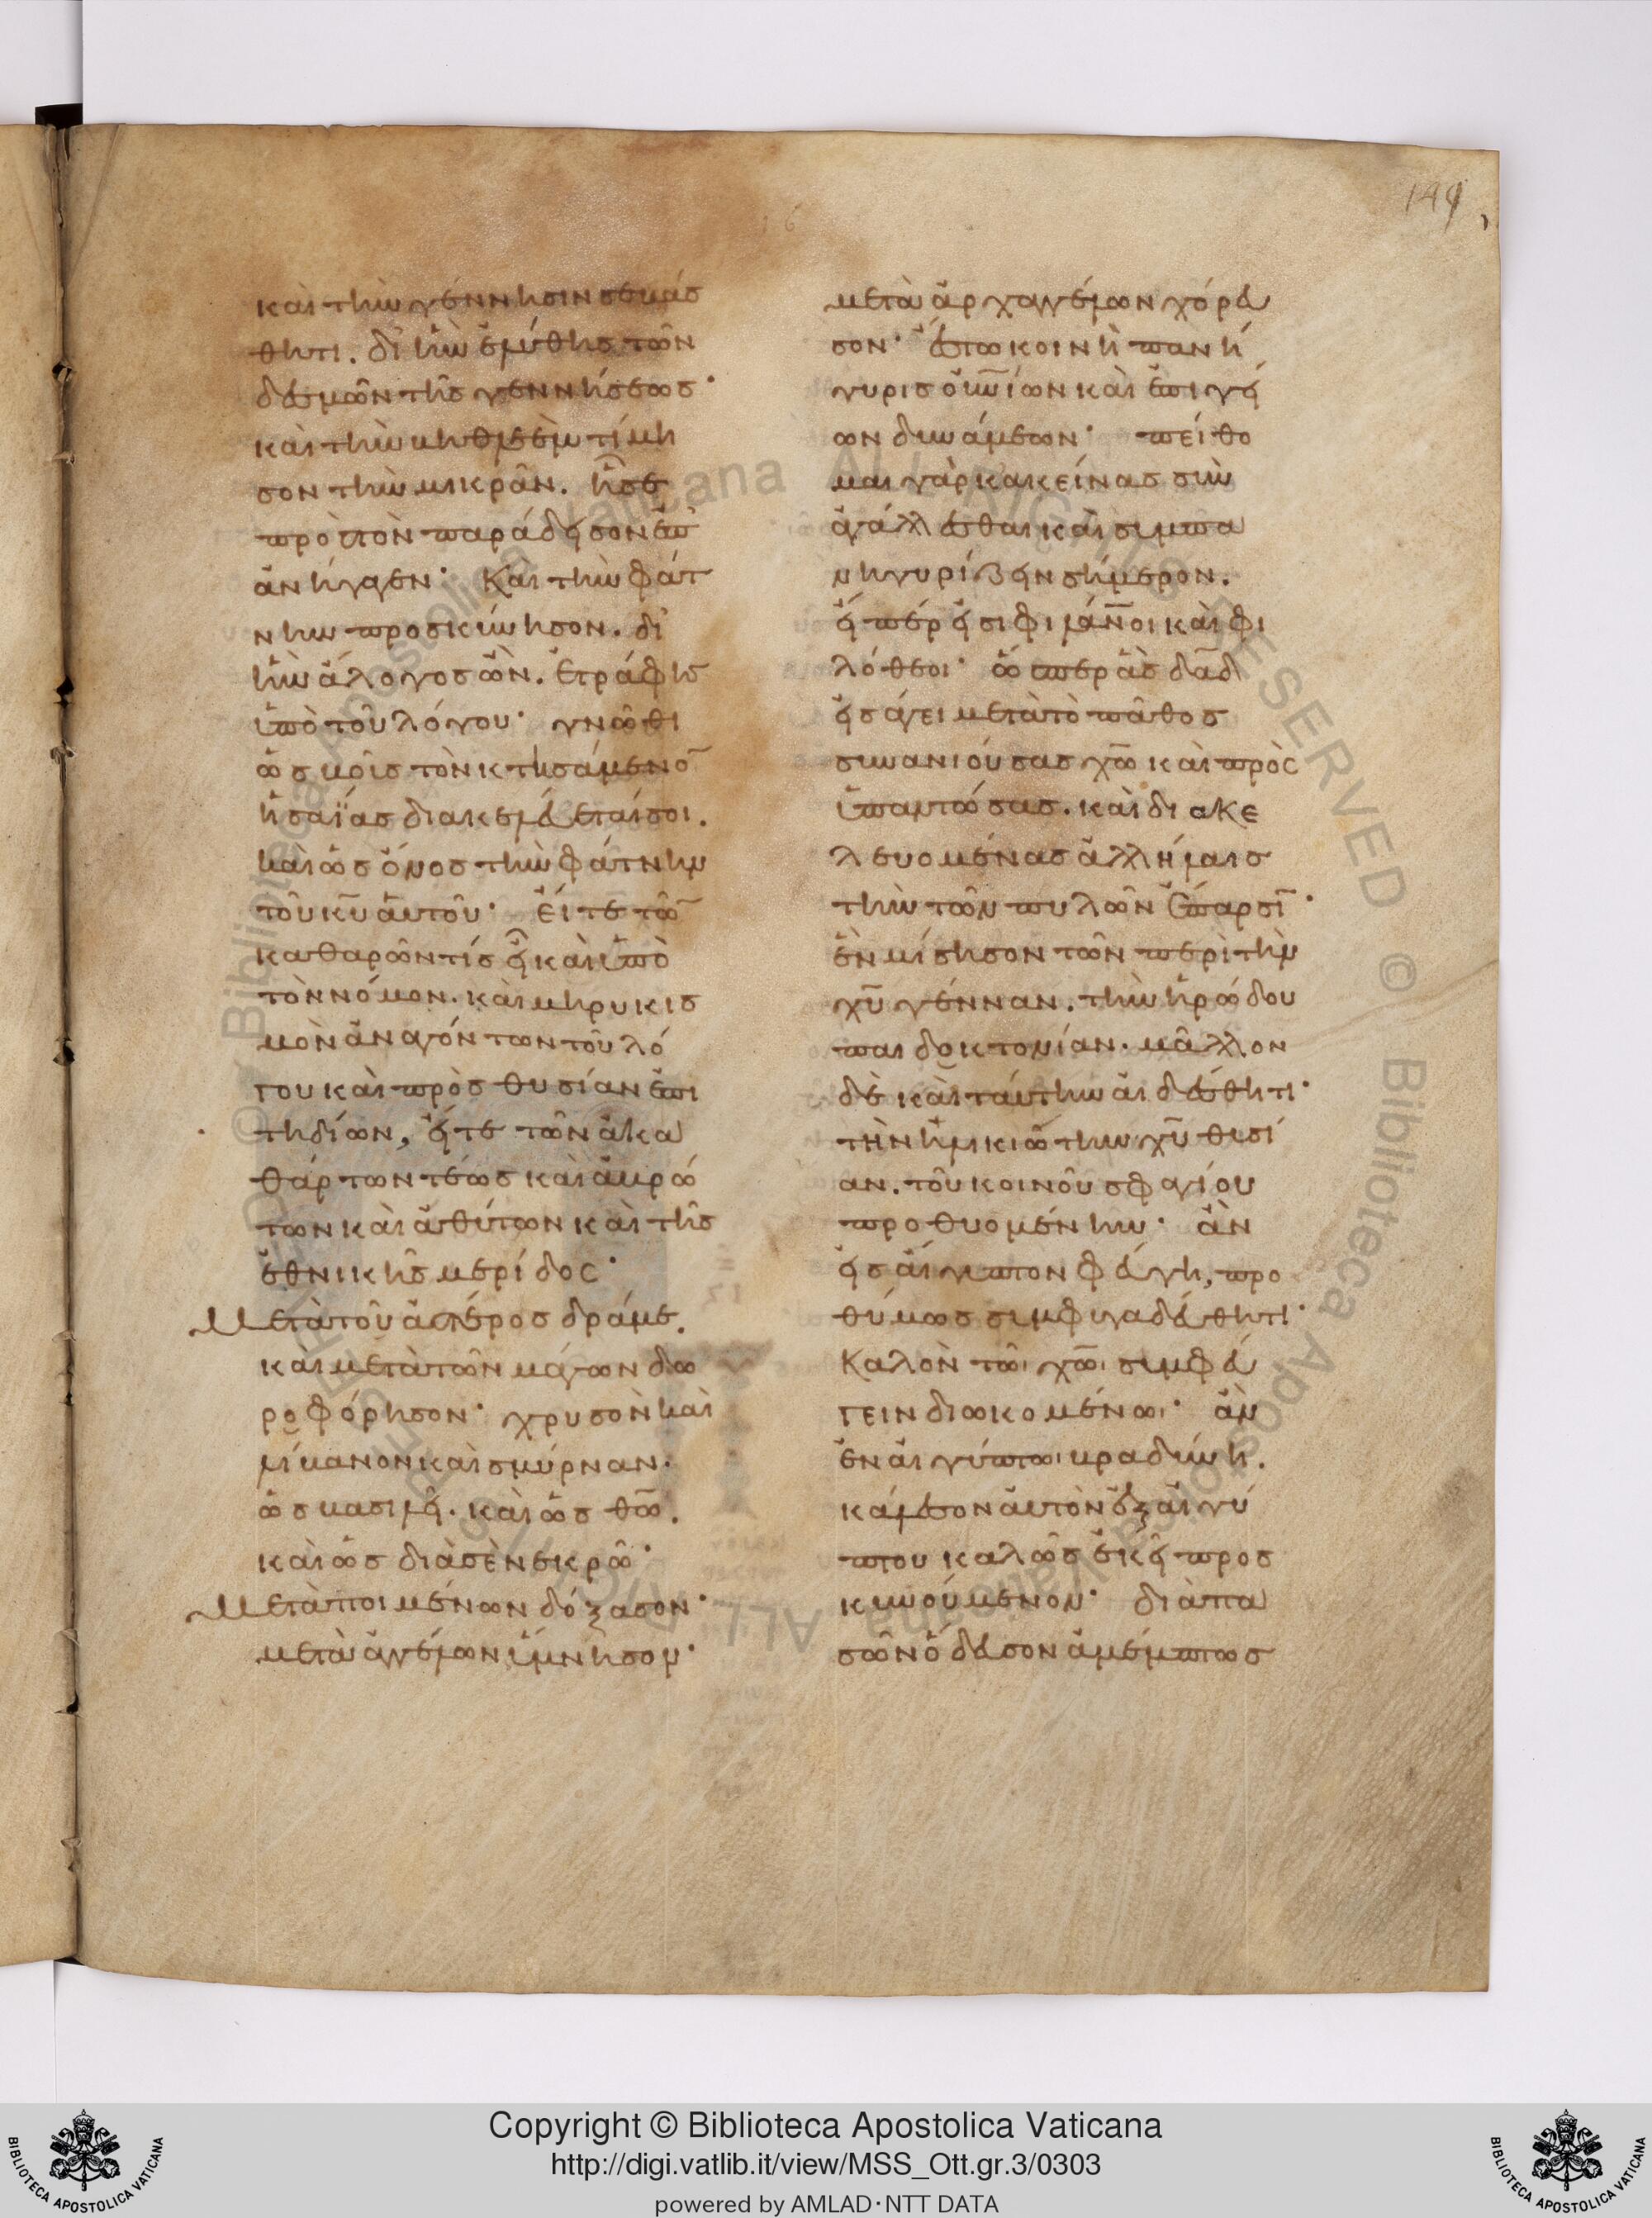 149
καὶ τὴν γέννησιν σεβάσ
θητι. δι' ἣν ἐλύθης τῶν
δεσμῶν τῆς γεννήσεως·
καὶ τὴν βηθλεὲμ τίμη
σον τὴν μικρὰν. ἥ σε
πρὸς τὸν παράδεισον ἐπ
ανήγαγεν· Καὶ τὴν φάτ
νην προσκύνησον. δι'
ἣν ἄλογος ὢν. ἐτράφης
ὑπὸ τοῦ λόγου· γνῶθι
ὡς βοῦς τὸν κτησάμενο̄
ἡσαΐας διακελεύεταί σοι.
καὶ ὡς ὄνος τὴν φάτνην
τοῦ κ̄ῡ αὐτοῦ· εἴτε τῶ̄
καθαρῶν τίς εἶ καὶ ὑπὸ
τὸν νόμον. καὶ μηρυκισ
μὸν ἀναγόντων τοῦ λό
γου καὶ πρὸς θυσίαν ἐπι
τηδίων, εἴτε τῶν ἀκα
θάρτων τέως καὶ ἀβρώ
των καὶ ἀθύτων καὶ τῆς
ἐθνικῆς μερίδος·
Μετὰ τοῦ ἀστέρος δράμε.
καὶ μετὰ τῶν μάγων δω
ροφόρησον· χρυσὸν καὶ
λίβανον καὶ σμύρναν.
ὡς βασιλεῖ. καὶ ὡς θ̄ω̄.
καὶ ὡς διὰ σὲ νεκρῶ·
Μετὰ ποιμένων δόξασον·
μετὰ ἀγγέλων ὕμνησον·
μετὰ ἀρχαγγέλων χόρευ
σον· ἔστω κοινὴ πανή
γυρις οὐν̄ίων καὶ ἐπιγεί
ων δυνάμεων· πείθο
μαι γὰρ κακείνας συν
αγάλλεσθαι καὶ συμπα
νηγυρίζειν σήμερον.
εἴπέρ εἰσι φιλάν̄οι καὶ φι
λόθεοι· ὥσπερ ἃς δ̄ᾱδ
εἰσάγει μετὰ τὸ πάθος
συνανιούσας χ̄ω̄ καὶ πρὸς
ὑπαντώσας. καὶ διακε
λευομένας ἀλλήλαις
τὴν τῶν πυλῶν ἔπαρσῑ·
ἓν μίσησον τῶν περὶ τὴν
χ̄ῡ γένναν. τὴν ἡρώδου
παιδοκτονίαν. μᾶλλον
δὲ καὶ ταύτην αἰδέσθητι·
τὴν ἡλικιῶτην χ̄ῡ θυσί
αν. τοῦ κοινοῦ σφαγίου
προθυομένην· ἂν
εἰς αἴγυπτον φεύγη, προ
θύμως συμφυγαδεύθητι·
Καλὸν τῶι χ̄ω̄ι συμφεύ
γειν διωκομένωι· ἂν
ἐν αἰγύπτωι βραδύνη.
κάλεσον αὐτὸν ἐξ αἰγύ
πτου καλῶς ἐκεῖ προσ
κυνούμενον· διὰ πα
σῶν ὅδευσον ἀμέμπτως
Copyright © Biblioteca Apostolica Vaticana
http://digi.vatlib.it/view/MSS_Ott.gr.3/0303
powered by AMLAD·NTT DATA